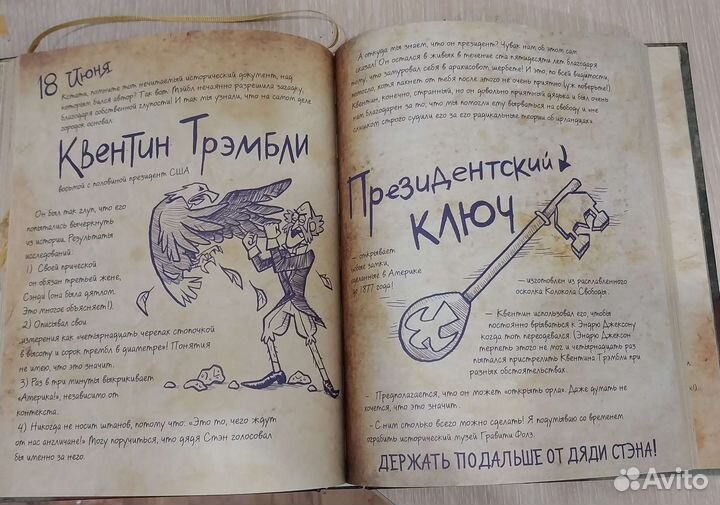 18 Июня
Кстати, помните тот нечитаемый исторический документ, над
которым бился автор? Так вот. Мэйбл нечаянно разрешила загадку,
благодаря собственной глупости! И так мы узнали, что на самом деле
городок основал
Квентин Трэмбли
восьмой с половиной президент США
Он был так глуп, что его
попытались вычеркнуть
из истории. Результаты
исследований:
1) Своей прической
он обязан третьей жене,
Сэнди (она была дятлом.
Это многое объясняет!).
2) Описывал свои
измерения как «четырнадцать черепах стопочкой
в высоту и сорок трембл в диаметре»! Понятия
не имею, что это значит.
3) Раз в три минуты выкрикивает
«Америка!», независимо от
контекста.
4) Никогда не носит штанов, потому что: «Это то, чего ждут
от нас англичане!» Могу поручиться, что дядя Стэн голосовал
бы именно за него.
А откуда мы знаем, что он президент? Чувак нам об этом сам
сказал! Он остался в живых в течение ста пятидесяти лет благодаря
тому, что замуровал себя в арахисовом щербете! И это, по всей видимости,
помогло, хотя пахнет от тебя после этого не очень приятно (уж поверьте!)
Квентин, конечно, странный, но он довольно приятный дядька и был очень
нам благодарен за то, что мы помогли ему вырваться на свободу и «не
слишком строго судили его за его радикальные теории об ирландцах».
Президентский
ключ
— открывает
любые замки,
сделанные в Америке
до 1877 года!
— изготовлен из расплавленного
осколка Колокола Свободы.
— Квентин использовал его, чтобы
постоянно врываться к Эндрю Джексону
когда тот переодевался. (Эндрю Джексон
терпеть этого не мог и четырнадцать раз
пытался пристрелить Квентина Трэмбли при
разных обстоятельствах.
— Предполагается, что он может «открыть орла». Даже думать не
хочется, что это значит.
— С ним столько всего можно сделать! Я подумываю со временем
ограбить исторический музей Гравити Фолз.
ДЕРЖАТЬ ПОДАЛЬШЕ ОТ ДЯДИ СТЭНА!
Avito